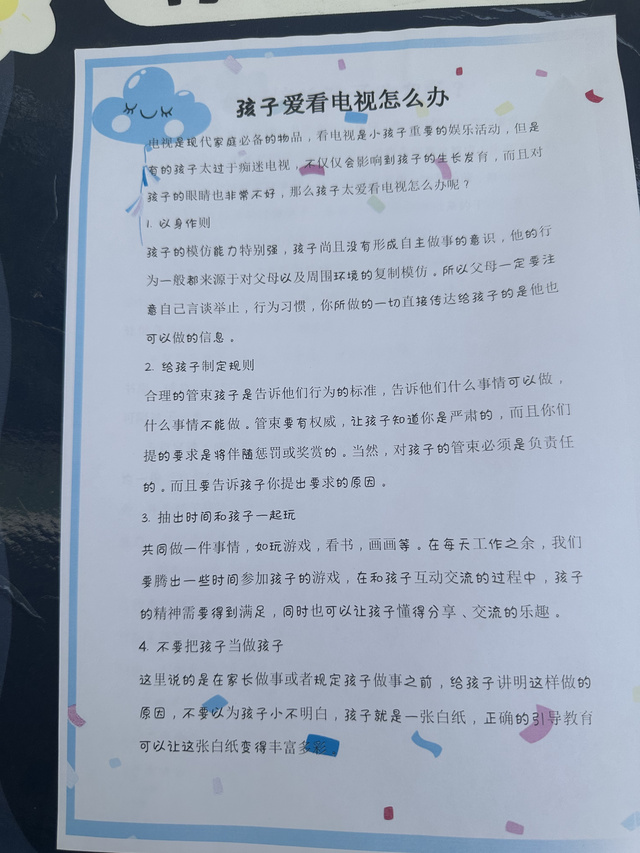 孩子爱看电视怎么办
电视是现代家庭必备的物品，看电视是小孩子重要的娱乐活动，但是
有的孩子太过于痴迷电视，不仅仅会影响到孩子的生长发育，而且对
孩子的眼睛也非常不好，那么孩子太爱看电视怎么办呢？
1. 以身作则
孩子的模仿能力特别强，孩子尚且没有形成自主做事的意识，他的行
为一般都来源于对父母以及周围环境的复制模仿。所以父母一定要注
意自己言谈举止，行为习惯，你所做的一切直接传达给孩子的是他也
可以做的信息。
2. 给孩子制定规则
合理的管束孩子是告诉他们行为的标准，告诉他们什么事情可以做，
什么事情不能做。管束要有权威，让孩子知道你是严肃的，而且你们
提的要求是将伴随惩罚或奖赏的。当然，对孩子的管束必须是负责任
的。而且要告诉孩子你提出要求的原因。
3. 抽出时间和孩子一起玩
共同做一件事情，如玩游戏，看书，画画等。在每天工作之余，我们
要腾出一些时间参加孩子的游戏，在和孩子互动交流的过程中，孩子
的精神需要得到满足，同时也可以让孩子懂得分享、交流的乐趣。
4. 不要把孩子当做孩子
这里说的是在家长做事或者规定孩子做事之前，给孩子讲明这样做的
原因，不要以为孩子小不明白，孩子就是一张白纸，正确的引导教育
可以让这张白纸变得丰富多彩。